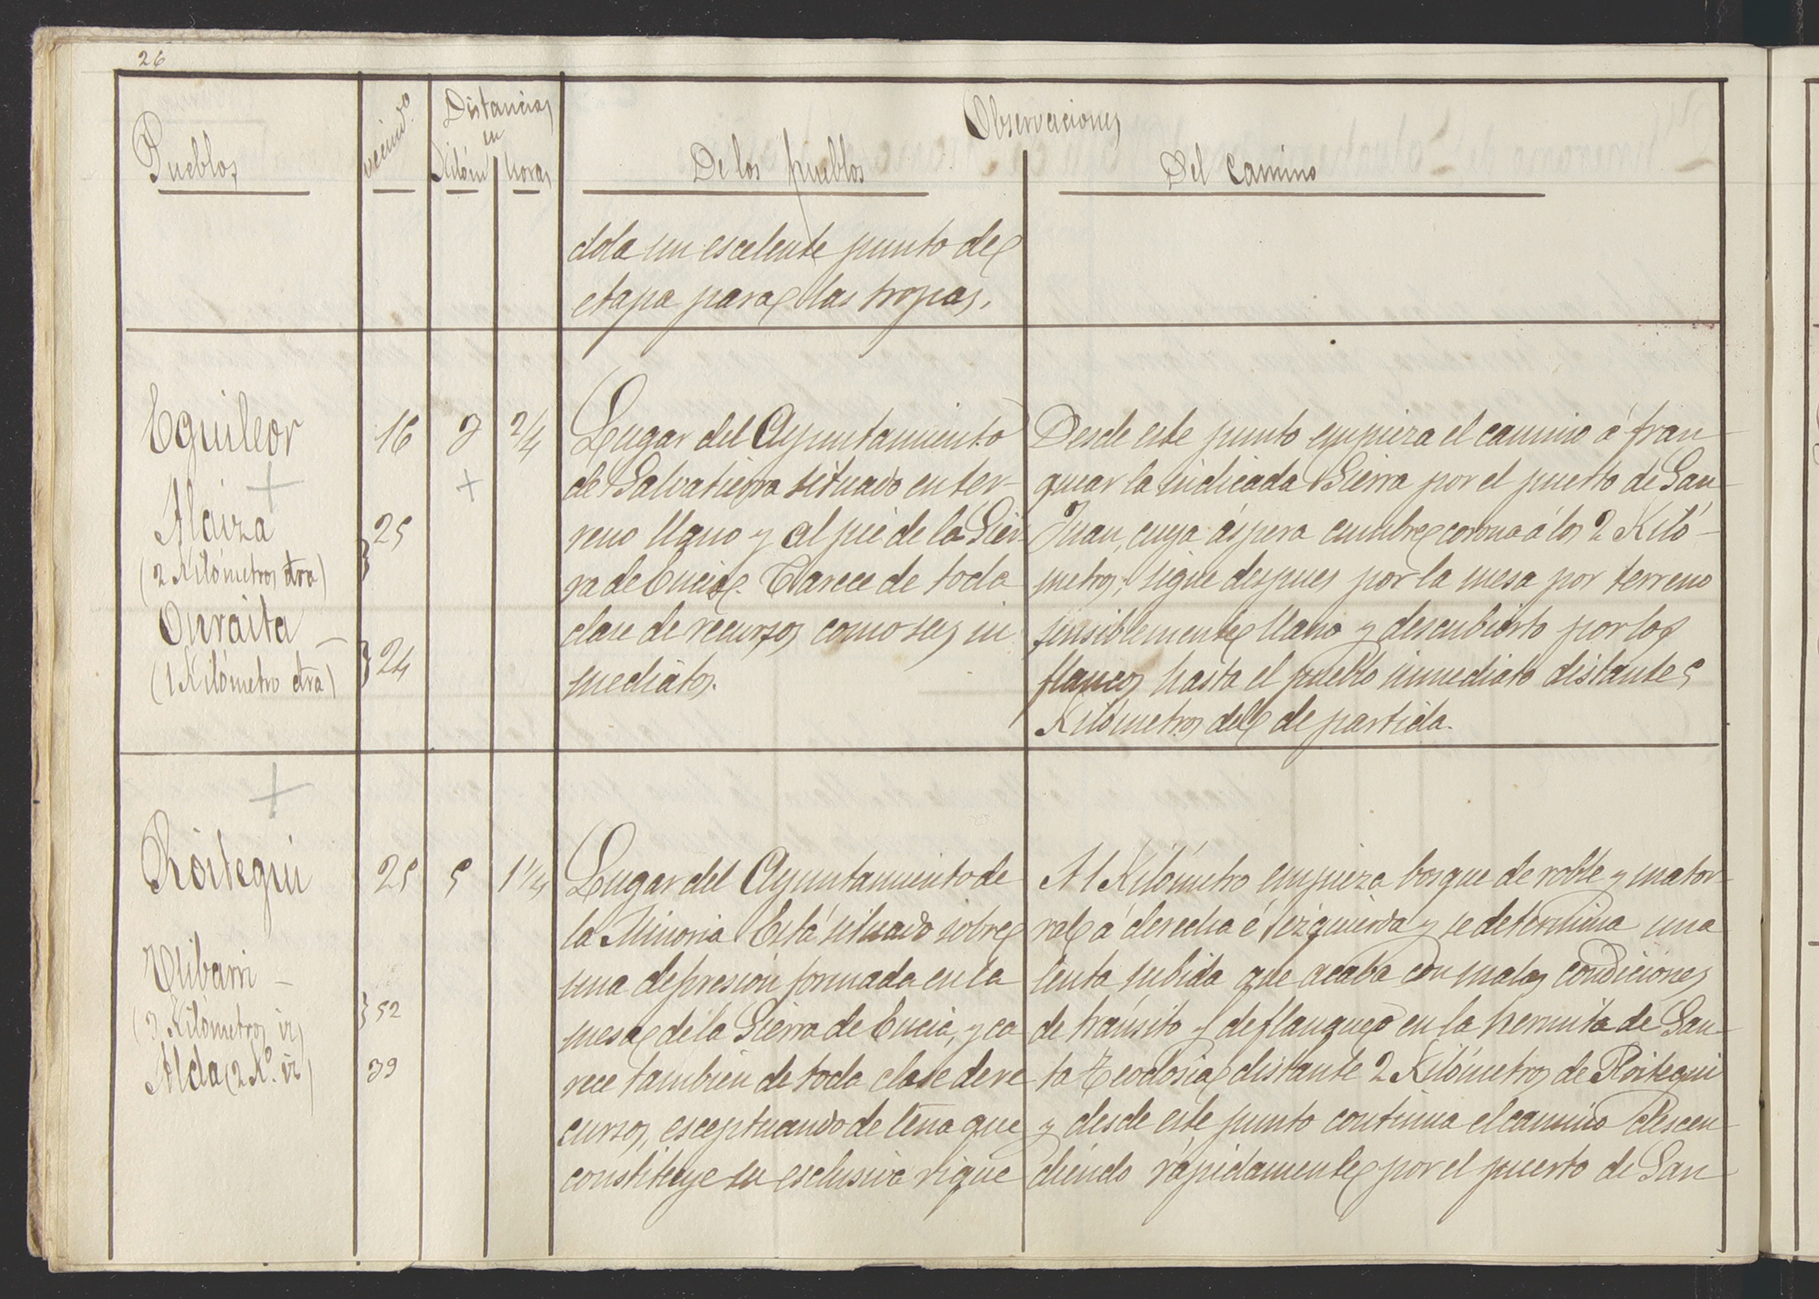 26
Pueblos
vecind.º
Distancias
en
Kilóm horas
Observaciones
De los pueblos
Del camino
dola un escelente punto de
etapa para las tropas.
Eguileor
16
3
2/4
+
Alaiza
+
25
(2 Kilómetros dra)
Onraita
24
(1 Kilómetro dra)
Lugar del Ayuntamiento
de Salvatierra situado en ter-
reno llano y al pié de la Sier
ra de Encia. Carece de toda
clase de recursos como sus in
mediatos.
Desde este punto empieza el camino á fran-
quear la indicada Sierra por el puerto de San
Juan, cuya áspera cumbre corona á los 2 Kiló-
metros; sigue despues por la mesa por terreno
sensiblemente llano y descubierto por los
flancos hasta el pueblo inmediato distante 5
Kilómetros del de partida.
+
Róitegui
25
5
1 1/4
Ulibarri -
52
(3 Kilómetros iz)
Alda (2 K.º iz)
39
Lugar del Ayuntamiento de
la Minoria Está situado sobre
una depresión formada en la
mesa de la Sierra de Encia, y ca
rece tambien de toda clase de re
cursos, esceptuando de leña que
constituye su esclusiva rique
Al Kilómetro empieza bosque de roble y mator-
ral á derecha é izquierda y se determina una
lenta subida que acaba con malas condiciones
de tránsito y de flanqueo en la hermita de San-
ta Teodosia distante 2 Kilómetros de Roitegui
y desde este punto continua el camino descen-
diendo rápidamente por el puerto de San